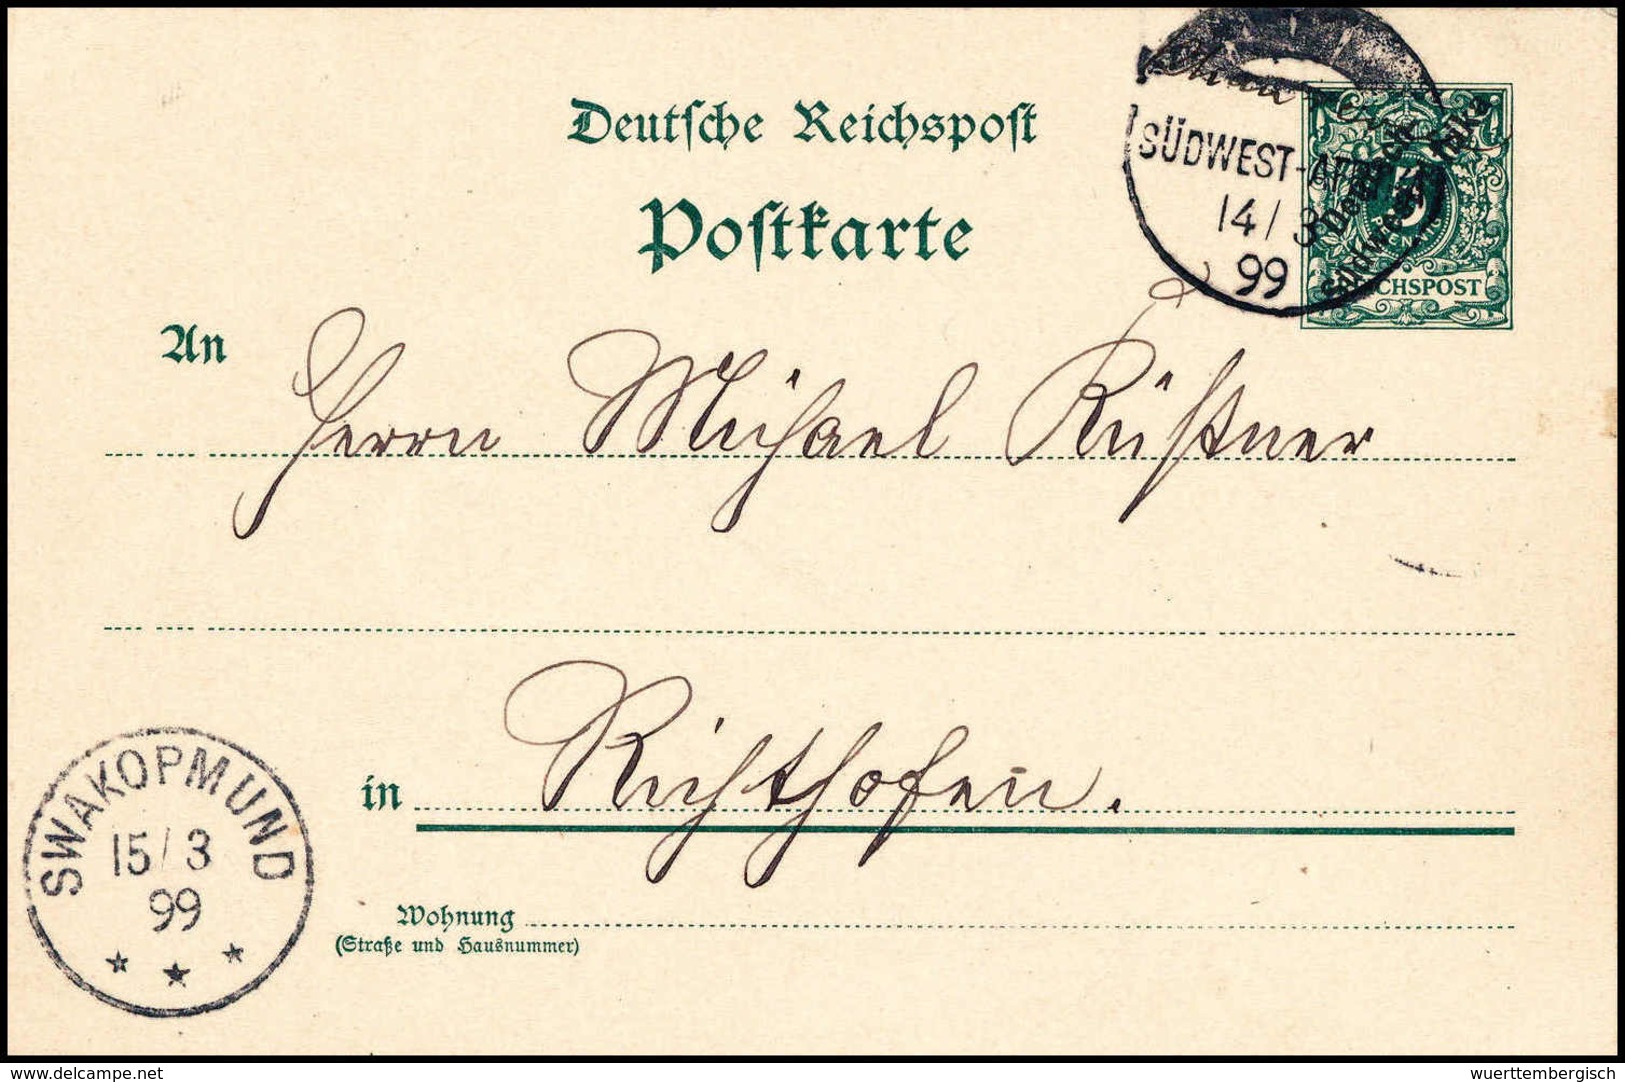 Deutsche Reichspost
Postkarte
SÜDWEST-AFRIKA
14/3
99
Deutsch-
Südwest-Afrika
5
PFENNIG
REICHSPOST
An Herrn Michael Küstner
in Richthofen.
SWAKOPMUND
15/3
99
Wohnung
(Straße und Hausnummer)
delcampe.net
wuerttembergisch